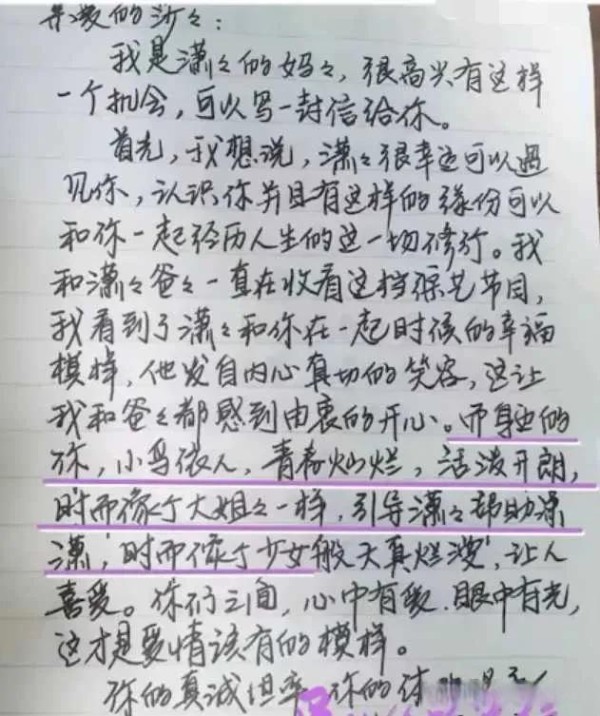 亲爱的沙々：
我是潇々的妈々，很高兴有这样
一个机会，可以写一封信给你。
首先，我想说，潇々很幸运可以遇
见你，认识你并且有这样的缘份可以
和你一起经历人生的这一切修行。我
和潇々爸々一直在收看这档综艺节目，
我看到了潇々和你在一起时候的幸福
模样，他发自内心真切的笑容，这让
我和爸々都感到由衷的开心。而身边的
你，小鸟依人，青春灿烂，活泼开朗，
时而像个大姐々一样，引导潇々帮助潇
潇，时而像个少女般天真烂漫，让人
喜爱。你们之间，心中有爱，眼中有光，
这才是爱情该有的模样。
你的真诚坦率 你的